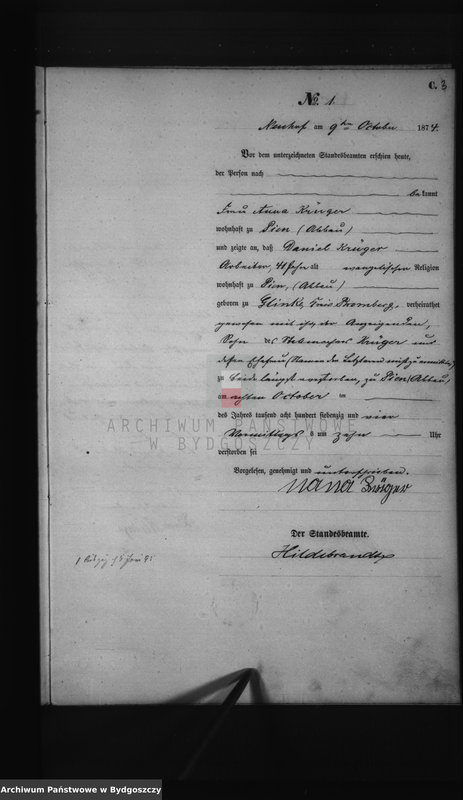 C. 3
No. 1.
Neuhof am 9ten October 1874.
Vor dem unterzeichneten Standesbeamten erschien heute,
der Person nach
bekannt
Frau Anna Krüger
wohnhaft zu Pien (Abbau)
und zeigte an, daß Daniel Krüger
Arbeiter, 40 Jahr alt evangelischer Religion
wohnhaft zu Pien, (Abbau)
geboren zu Glinke, Kreis Bromberg, verheirathet
gewesen mit der Anzeigenden,
Sohn des Stellmachers Krüger und
dessen Ehefrau (Namen der Letzteren nicht zu ermitteln)
zu beide längst verstorben, zu Pien (Abbau)
am achten October
des Jahres tausend acht hundert siebenzig und vier
Vormittags um zehn Uhr
verstorben sei
Vorgelesen, genehmigt und unterschrieben.
ARCHIWUM PAŃSTWOWE
W BYDGOSZCZY
Der Standesbeamte.
Hildebrandt
Archiwum Państwowe w Bydgoszczy